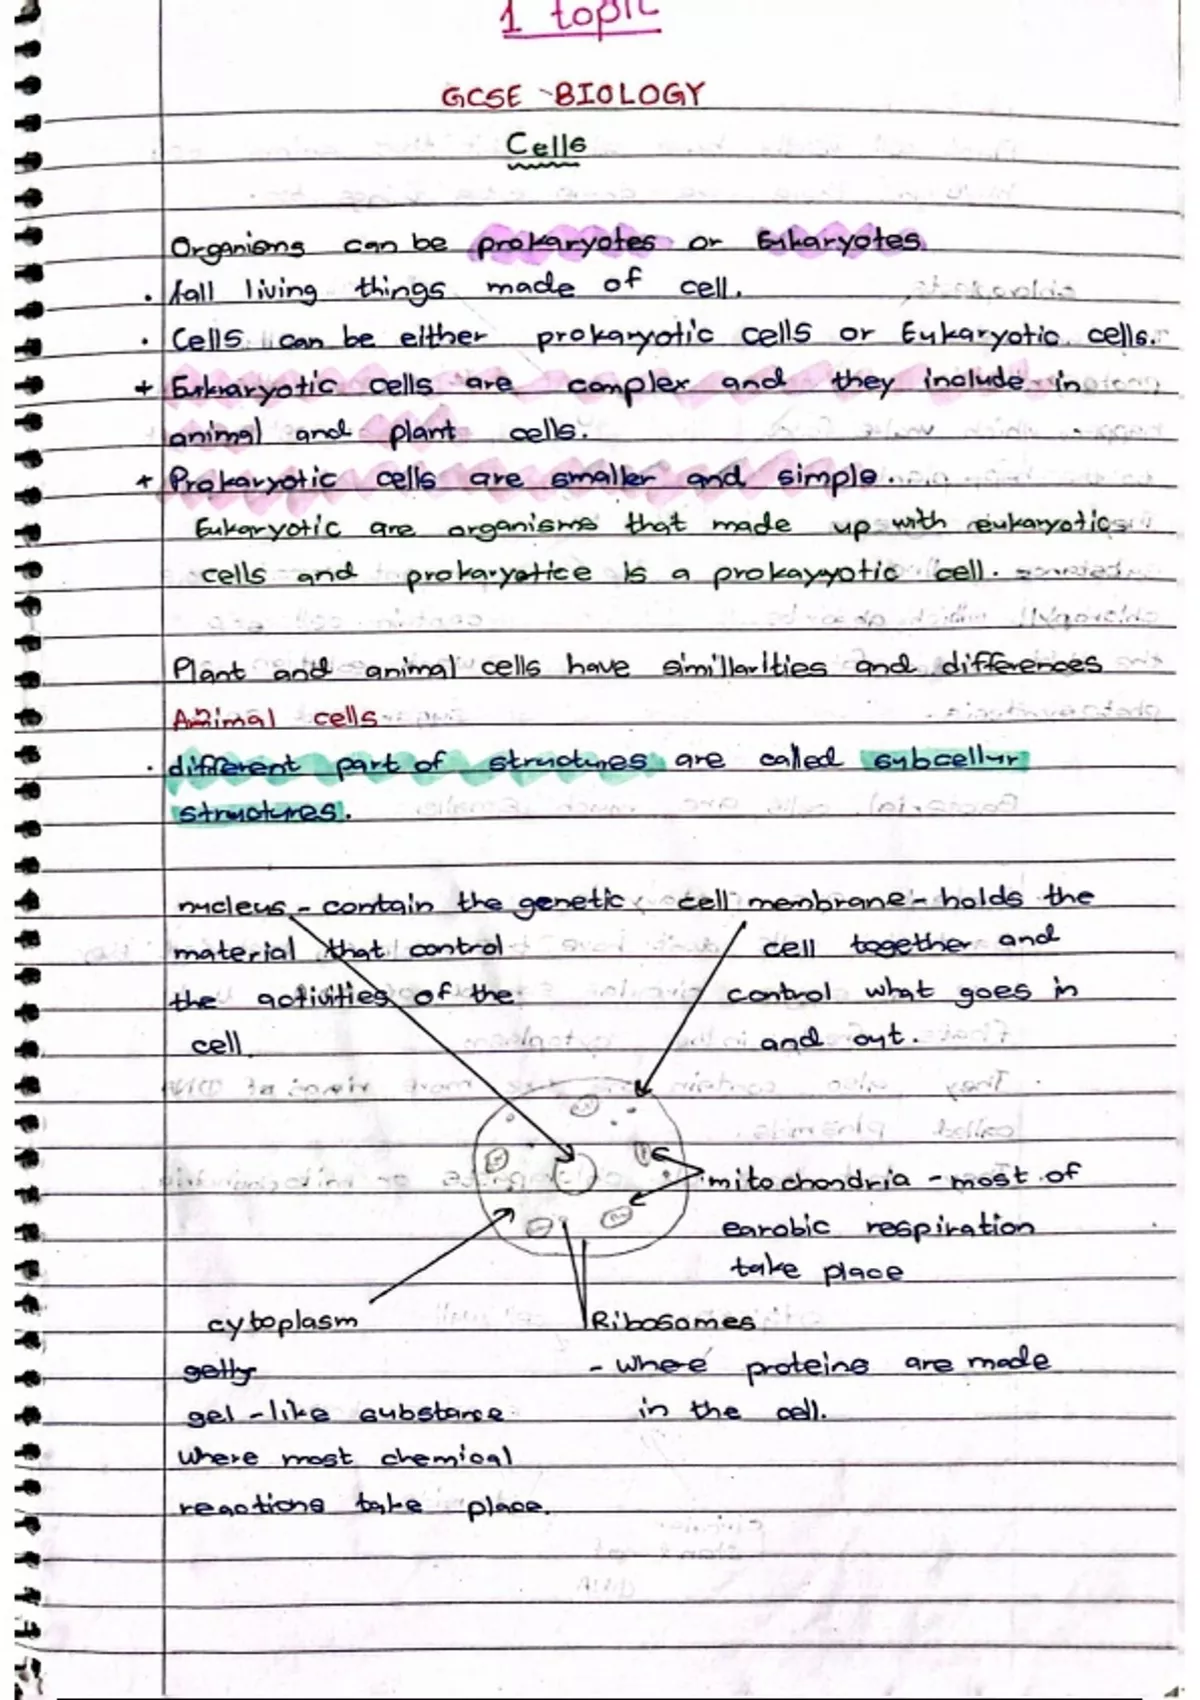 1 topic
GCSE - BIOLOGY
Cells
Organisms can be prokaryotes or Eukaryotes.
. all living things made of cell.
. Cells can be either prokaryotic cells or Eukaryotic cells.
+ Eukaryotic cells are complex and they include in
animal and plant cells.
+ Prokaryotic cells are smaller and simple.
Eukaryotic are organisms that made up with eukaryotic
cells and prokaryotice is a prokayyotic cell.
Plant and animal cells have simillarities and differences
Animal cells
. different part of structures are called subcellur
structures.
nucleus - contain the genetic
material that control
the activities of the
cell.
cell membrane - holds the
cell together and
control what goes in
and out.
mitochondria - most of
earobic respiration
take place
cytoplasm
getty
gel-like substance
where most chemical
reactions take place.
Ribosomes
- where proteins are made
in the cell.